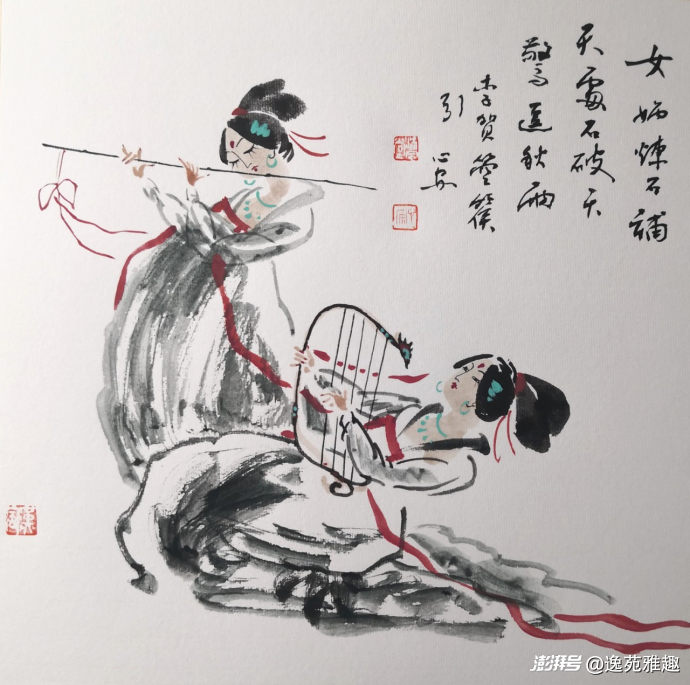 女娲炼石補
天處石破天
驚逗秋雨
李賀箜篌
引 心安
澎湃号@逸苑雅趣